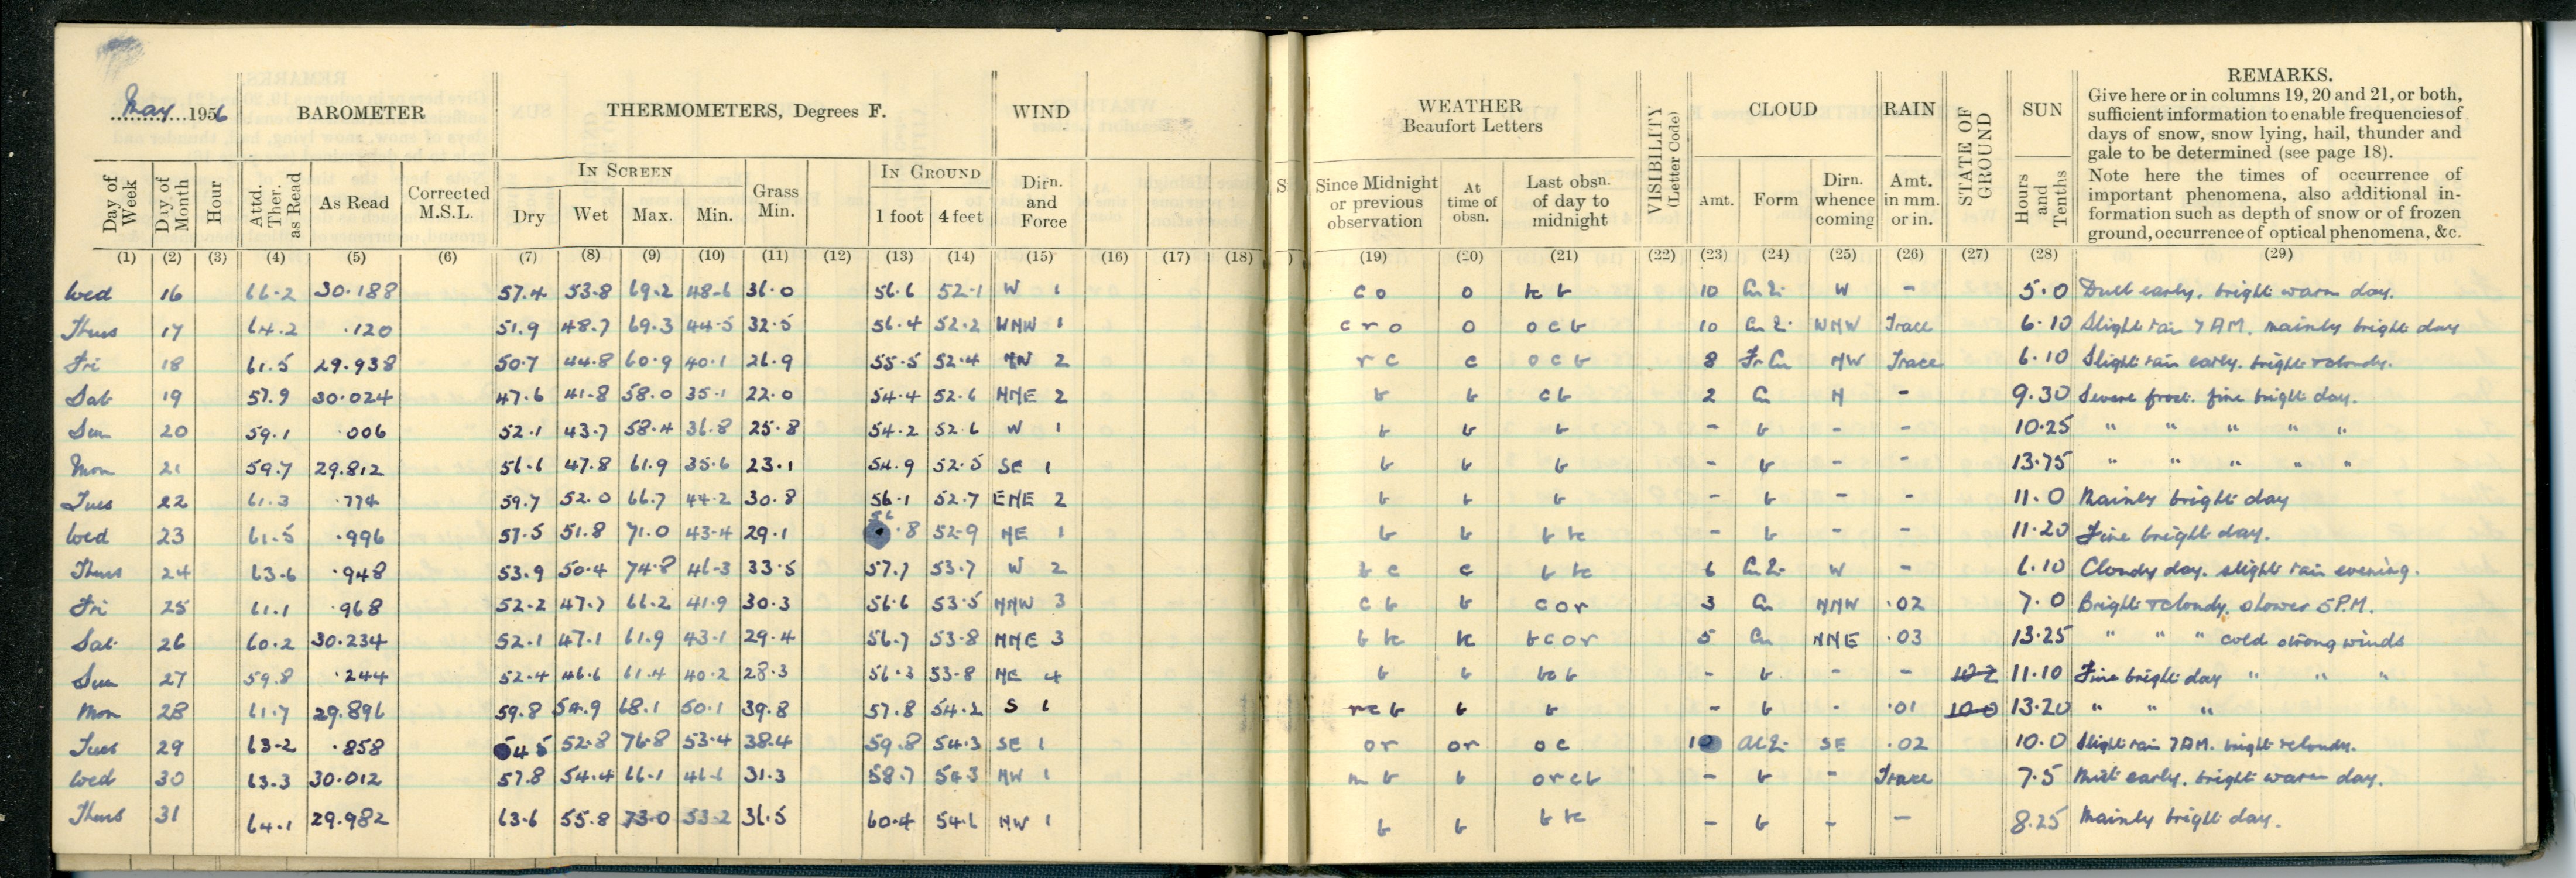 May 1956 BAROMETER THERMOMETERS, Degrees F. WIND WEATHER Beaufort Letters VISIBILITY (Letter Code) CLOUD RAIN STATE OF GROUND SUN REMARKS.
Give here or in columns 19, 20 and 21, or both,
sufficient information to enable frequencies of
days of snow, snow lying, hail, thunder and
gale to be determined (see page 18).
Note here the times of occurrence of
important phenomena, also additional in-
formation such as depth of snow or of frozen
ground, occurrence of optical phenomena, &c.
IN SCREEN IN GROUND
Day of Week Day of Month Hour Attd. Ther. as Read As Read Corrected M.S.L. Dry Wet Max. Min. Grass Min. 1 foot 4 feet Dirn. and Force S Since Midnight or previous observation At time of obsn. Last obsn. of day to midnight Amt. Form Dirn. whence coming Amt. in mm. or in. Hours and Tenths
(1) (2) (3) (4) (5) (6) (7) (8) (9) (10) (11) (12) (13) (14) (15) (16) (17) (18) ) (19) (20) (21) (22) (23) (24) (25) (26) (27) (28) (29)
Wed 16 66.2 30.188 57.4 53.8 69.2 48.6 36.0 56.6 52.1 W 1 c o o b 10 W - 5.0 Dull early. bright warm day.
Thurs 17 64.2 .120 51.9 48.7 69.3 44.5 32.5 56.4 52.2 WNW 1 c r o o o c b 10 WNW Trace 6.10 Slight rain 7 AM. mainly bright day
Fri 18 61.5 29.938 50.7 44.8 60.9 40.1 26.9 55.5 52.4 NW 2 r c c o c b 8 Fr Cu NW Trace 6.10 Slight rain early. bright & cloudy.
Sat 19 57.9 30.024 47.6 41.8 58.0 35.1 22.0 54.4 52.6 NNE 2 b b c b 2 Cu N - 9.30 Severe frost. fine bright day.
Sun 20 59.1 .006 52.1 43.7 58.4 36.8 25.8 54.2 52.6 W 1 b b b - b - - 10.25 " " " " "
Mon 21 59.7 29.812 56.6 47.8 61.9 35.6 23.1 54.9 52.5 SE 1 b b b - b - - 13.75 " " " " "
Tues 22 61.3 .774 59.7 52.0 66.7 44.2 30.8 56.1 52.7 ENE 2 b b b - b - - 11.0 Mainly bright day
Wed 23 61.5 .996 57.5 51.8 71.0 43.4 29.1 56.8 52.9 NE 1 b b b - b - - 11.20 Fine bright day.
Thurs 24 63.6 .948 53.9 50.4 74.8 46.3 33.5 57.7 53.7 W 2 b c c b 6 W - 6.10 Cloudy day. slight rain evening.
Fri 25 61.1 .968 52.2 47.7 66.2 41.9 30.3 56.6 53.5 NNW 3 c b b c o r 3 Cu NNW .02 7.0 Bright & cloudy. shower 5 P.M.
Sat 26 60.2 30.234 52.1 47.1 61.9 43.1 29.4 56.7 53.8 NNE 3 b b c o r 5 Cu NNE .03 13.25 " " " cold strong winds
Sun 27 59.8 .244 52.4 46.6 61.4 40.2 28.3 56.3 53.8 NE 4 b b bc b - b - - 11.10 Fine bright day " " "
Mon 28 61.7 29.896 59.8 54.9 68.1 50.1 39.8 57.8 54.2 S 1 r c b b b - b - .01 13.20 " " "
Tues 29 63.2 .858 54.5 52.8 76.8 53.4 38.4 59.8 54.3 SE 1 o r o r o c 10 SE .02 10.0 Slight rain 7 AM. bright & cloudy.
Wed 30 63.3 30.012 57.8 54.4 66.1 46.6 31.3 58.7 54.3 NW 1 m b b o r c b - b - Trace 7.5 Mist early. bright warm day.
Thurs 31 64.1 29.982 63.6 55.8 73.0 53.2 36.5 60.4 54.6 NW 1 b b b - b - - 8.25 Mainly bright day.